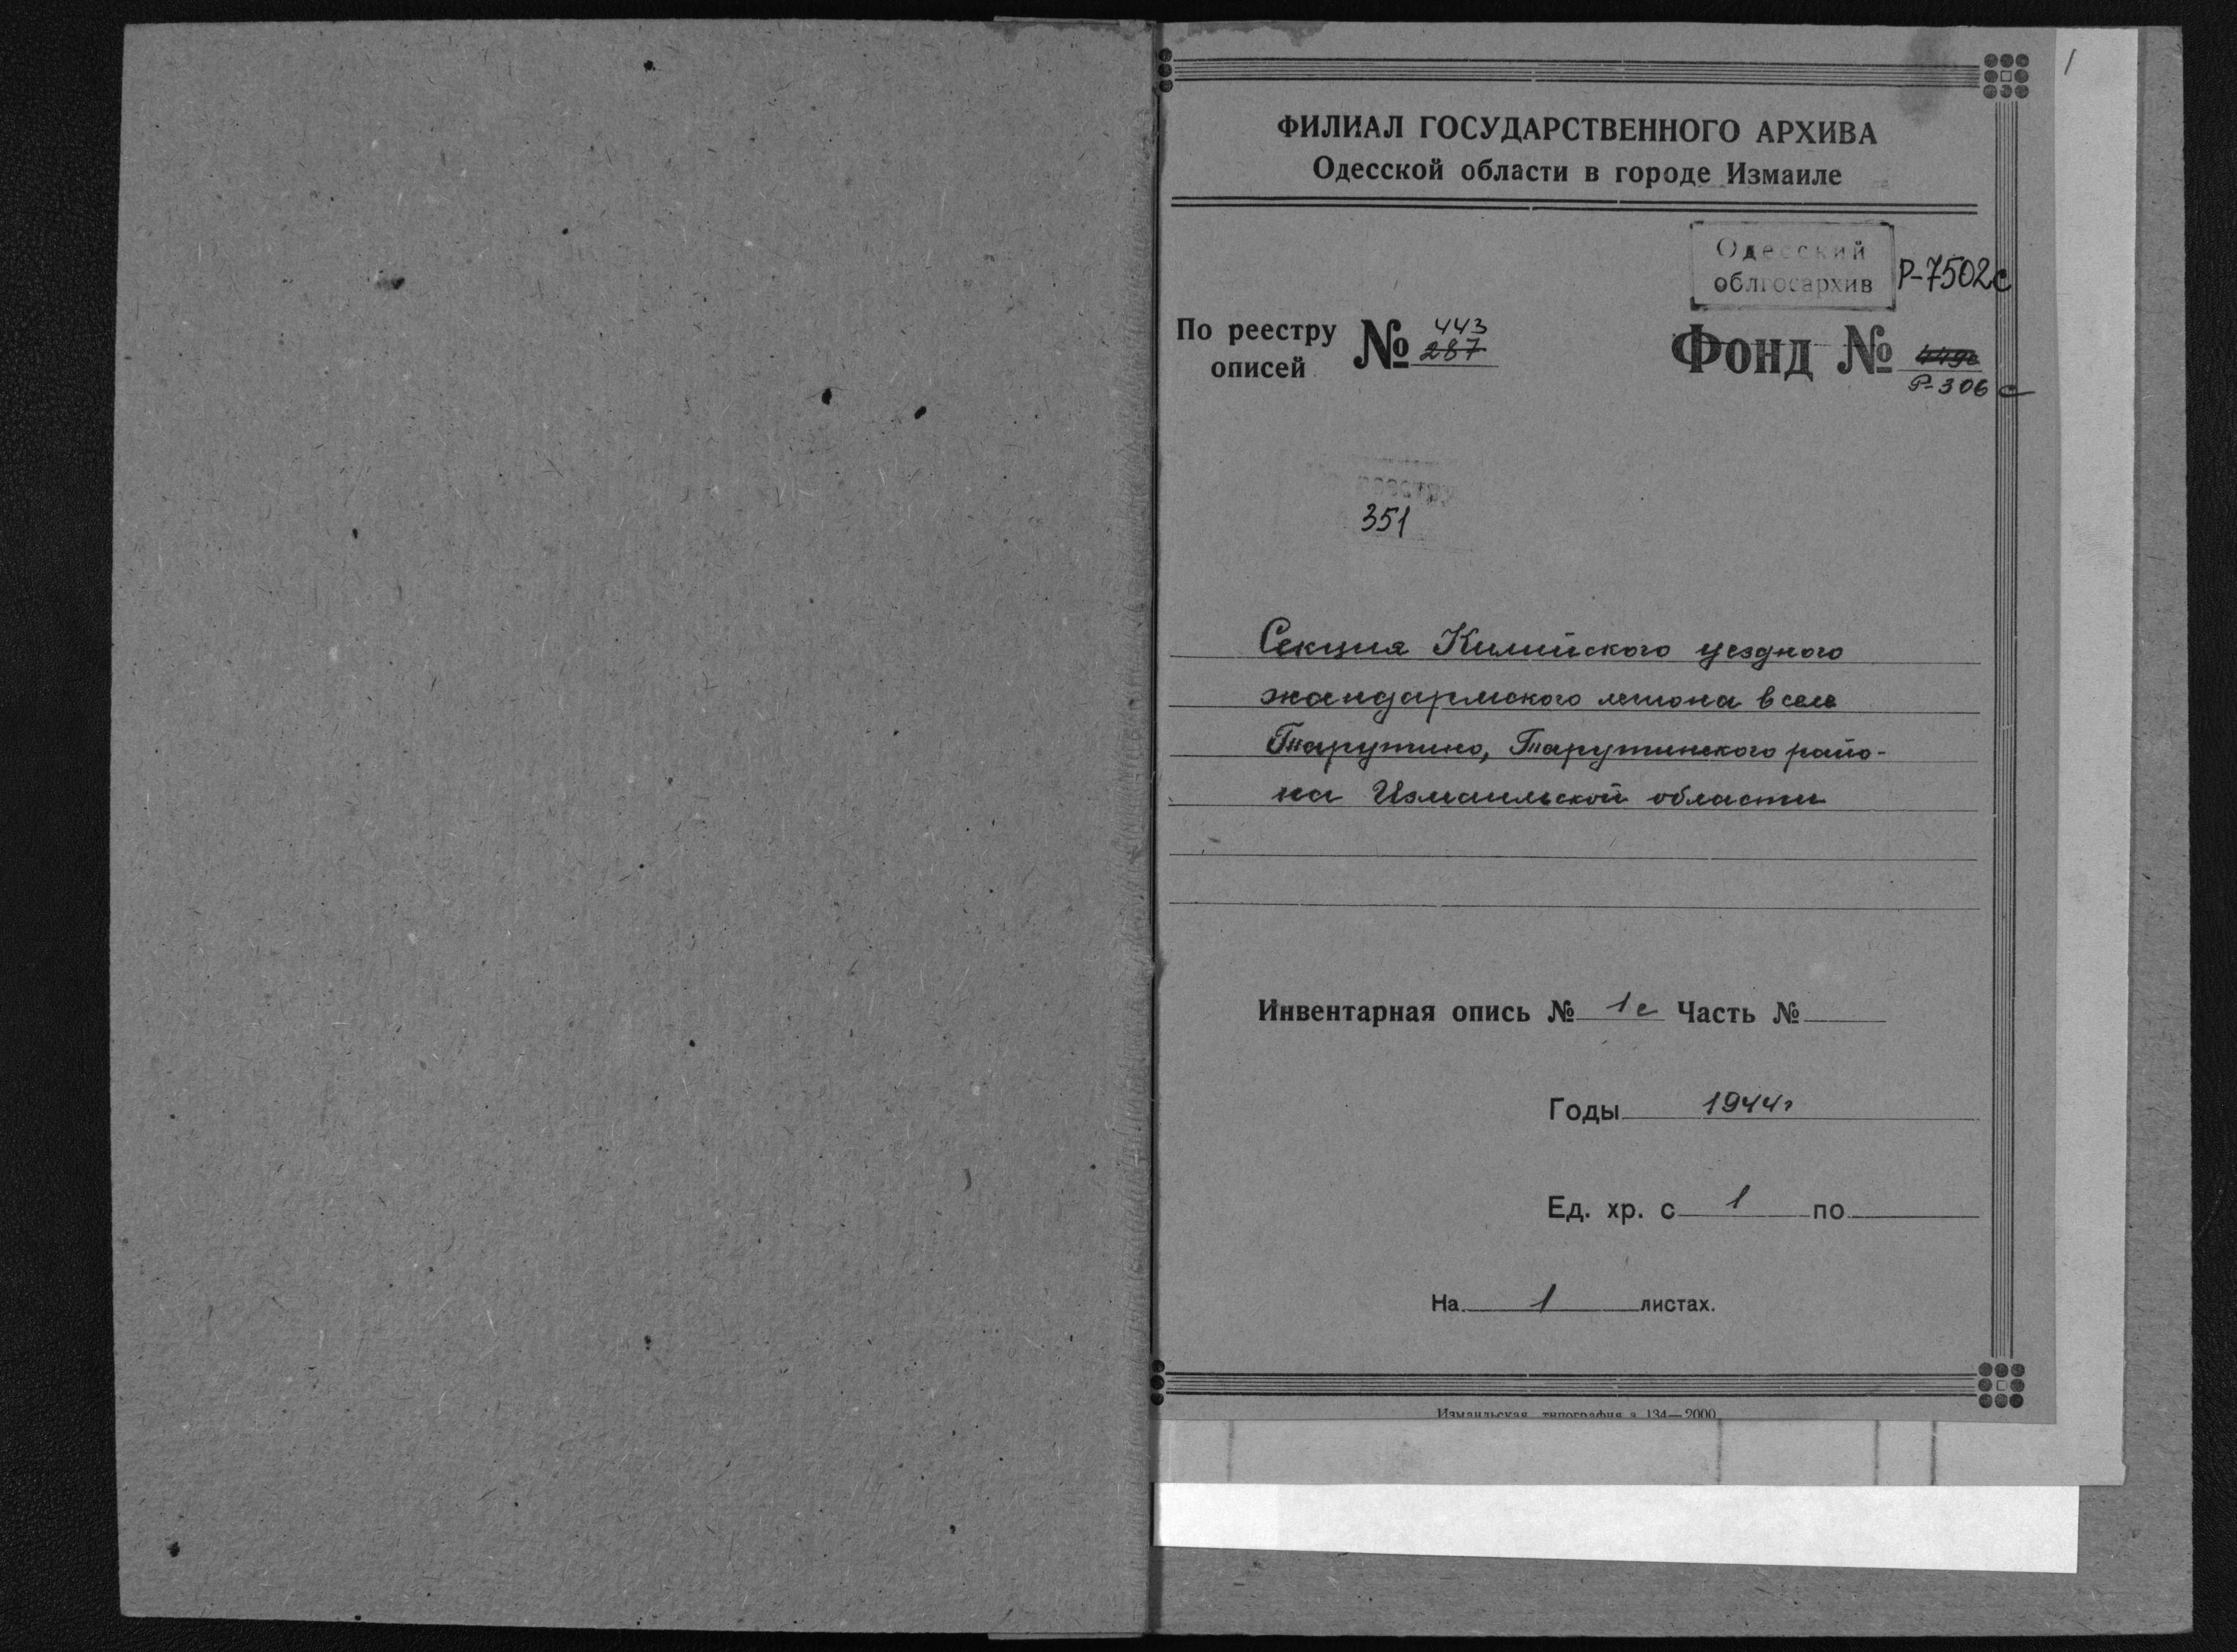 1
ФИЛИАЛ ГОСУДАРСТВЕННОГО АРХИВА
Одесской области в городе Измаиле
Одесский
облгосархив
Р-7502с
По реестру
описей
№ 443
287
Фонд №
Р-306 с
351
Секция Килийского уездного
жандармского легиона в селе
Тарутино, Тарутинского райо-
на Измаильской области
Инвентарная опись № 1с Часть №
Годы 1944г
Ед. хр. с 1 по
На 1 листах.
Измаильская типография з. 134—2000